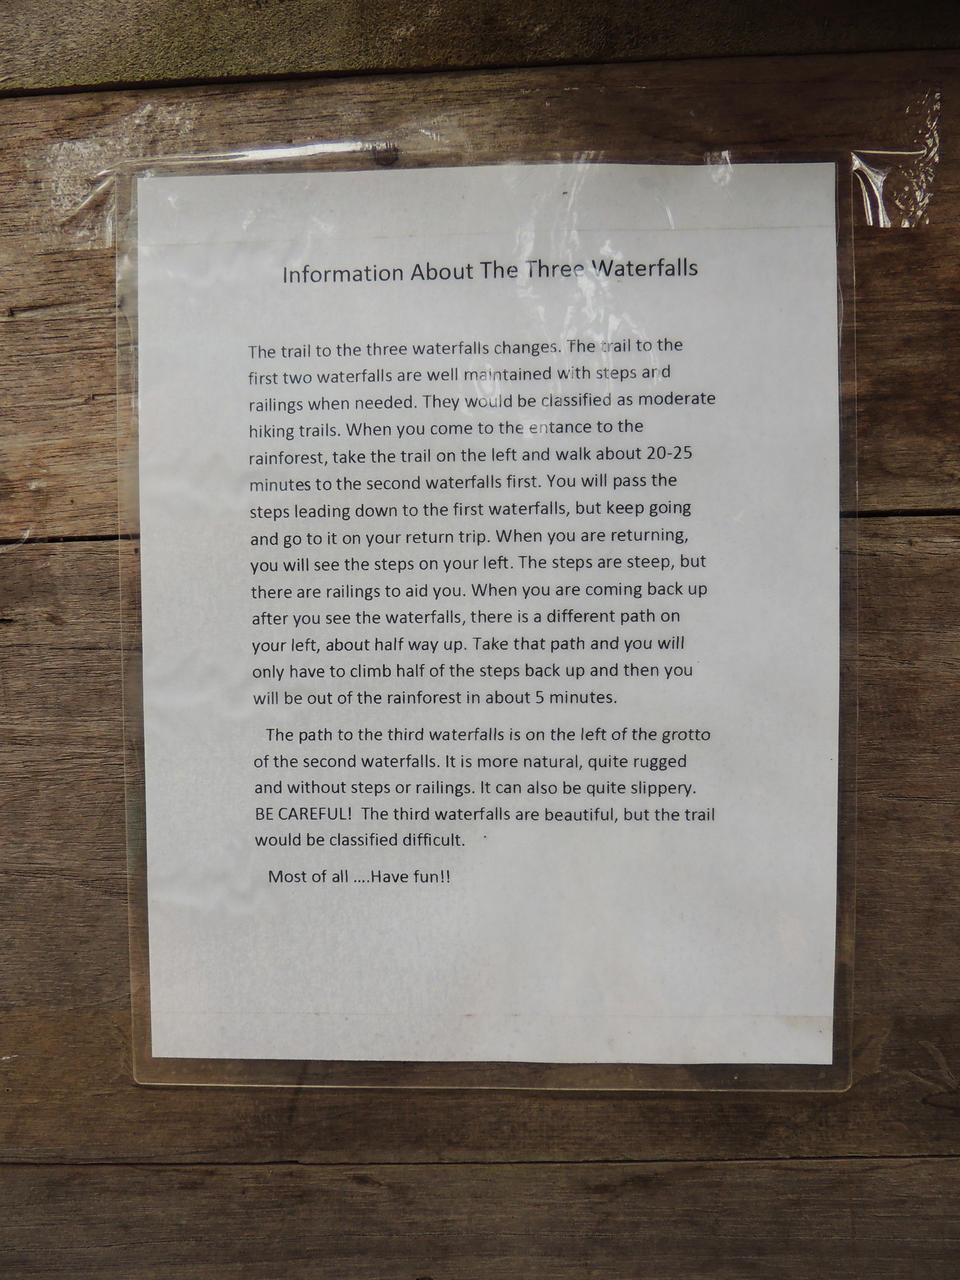 Information About The Three Waterfalls
The trail to the three waterfalls changes. The trail to the
first two waterfalls are well maintained with steps and
railings when needed. They would be classified as moderate
hiking trails. When you come to the entance to the
rainforest, take the trail on the left and walk about 20-25
minutes to the second waterfalls first. You will pass the
steps leading down to the first waterfalls, but keep going
and go to it on your return trip. When you are returning,
you will see the steps on your left. The steps are steep, but
there are railings to aid you. When you are coming back up
after you see the waterfalls, there is a different path on
your left, about half way up. Take that path and you will
only have to climb half of the steps back up and then you
will be out of the rainforest in about 5 minutes.
The path to the third waterfalls is on the left of the grotto
of the second waterfalls. It is more natural, quite rugged
and without steps or railings. It can also be quite slippery.
BE CAREFUL!  The third waterfalls are beautiful, but the trail
would be classified difficult.
Most of all ....Have fun!!